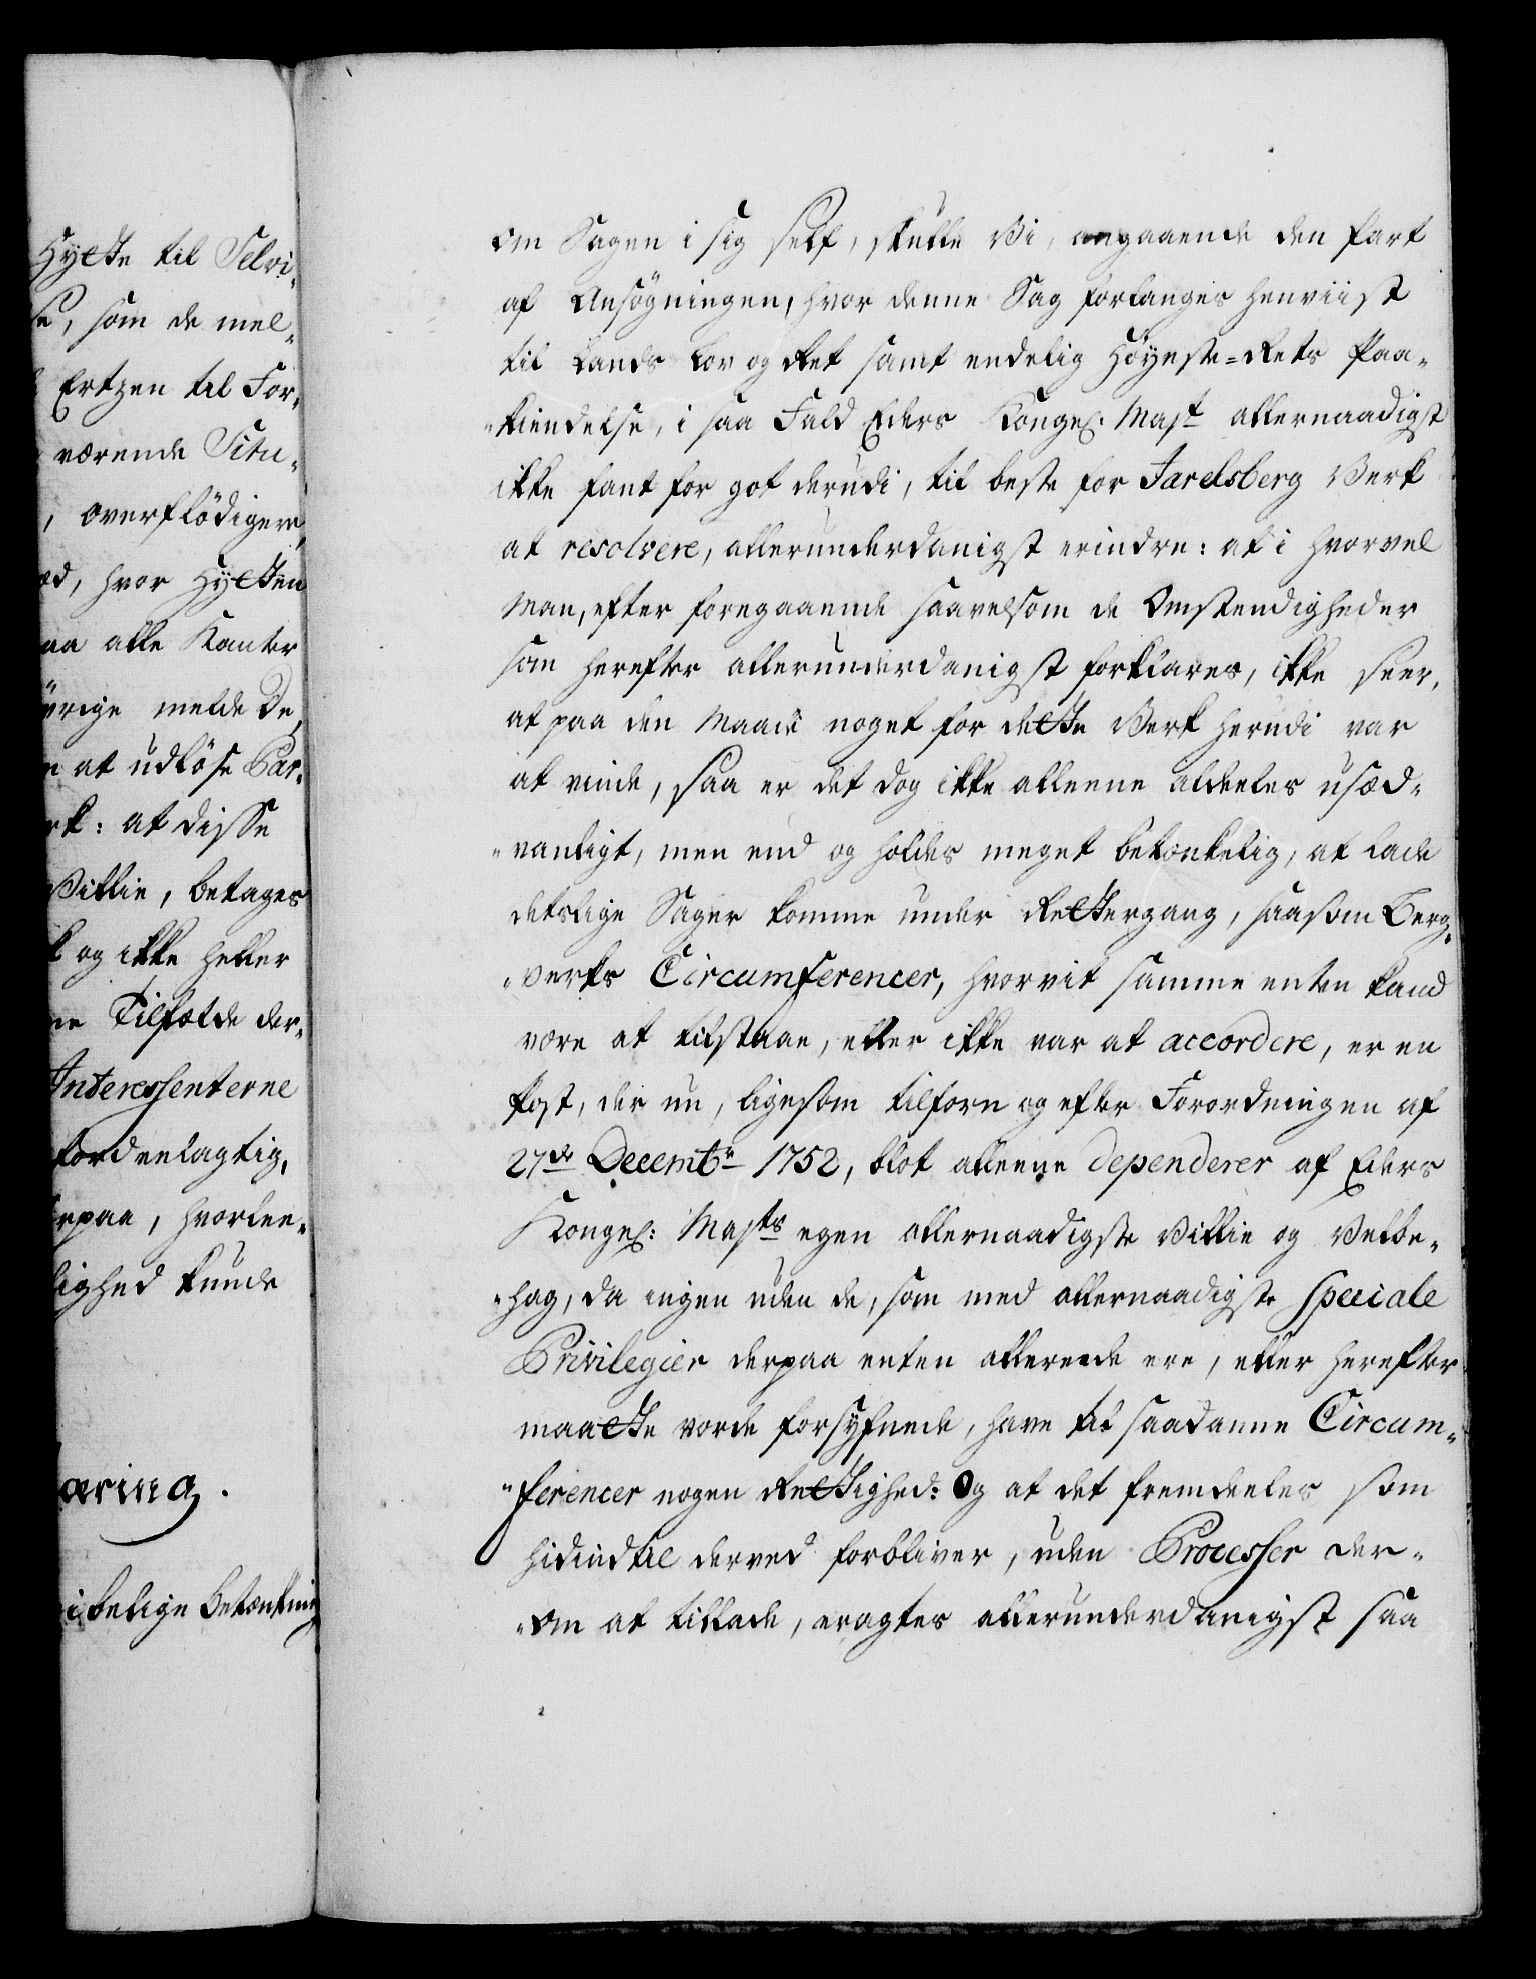 Hytte til Selvi-
se, som de mel-
Ertzen til For-
værende Situ-
, overflødigere,
ed, hvor Hytten
aa alle Kanter
øvrige meldede,
n at udløse Par-
rk: at disse
Villie, betages
k og ikke heller
ne Tilfælde der-
Interessenterne
fordeelagtig,
rpaa, hvorlee-
lighed kunde
æring.
ikelige Betænkning
om Sagen i sig self, skulle Vi, angaaende den Part
af Ansøgningen, hvor denne Sag forlanges henviist
til Lands Lov og Ret samt endelig Høyeste-Rets Paa-
kiendelse, i saa Fald Eders Kongel: Mayt allernaadigst
ikke fant for got derudi, til beste for Jarelsberg Verk
at resolvere, allerunderdanigst erindre: at i hvorvel
man, efter foregaaende saavelsom de Omstendigheder
som herefter allerunderdanigst forklares, ikke seer,
at paa den Maade noget for dette Verk herudi var
at vinde, saa er det dog ikke alleene aldeeles usæd-
vanligt, men end og holdes meget betænkelig, at lade
deslige Sager komme under Rettergang, saasom Berg-
verks Circumferencer, hvorvit samme enten kand
være at tilstaae, eller ikke var at accordere, er en
Post, der nu, ligesom tilforn og efter Forordningen af
27de Decembr 1752, blot alleene dependerer af Eders
Kongel: Mayts egen allernaadigste Villie og Velbe-
hag, da ingen uden de, som med allernaadigste speciale
Privilegier derpaa enten allereede ere, eller herefter
maatte vorde forsynede, have til saadanne Circum-
ferencer nogen Rettighed: Og at det fremdeeles som
hidindtil derved forbliver, uden Processer der-
om at tillade, eragtes allerunderdanigst saa